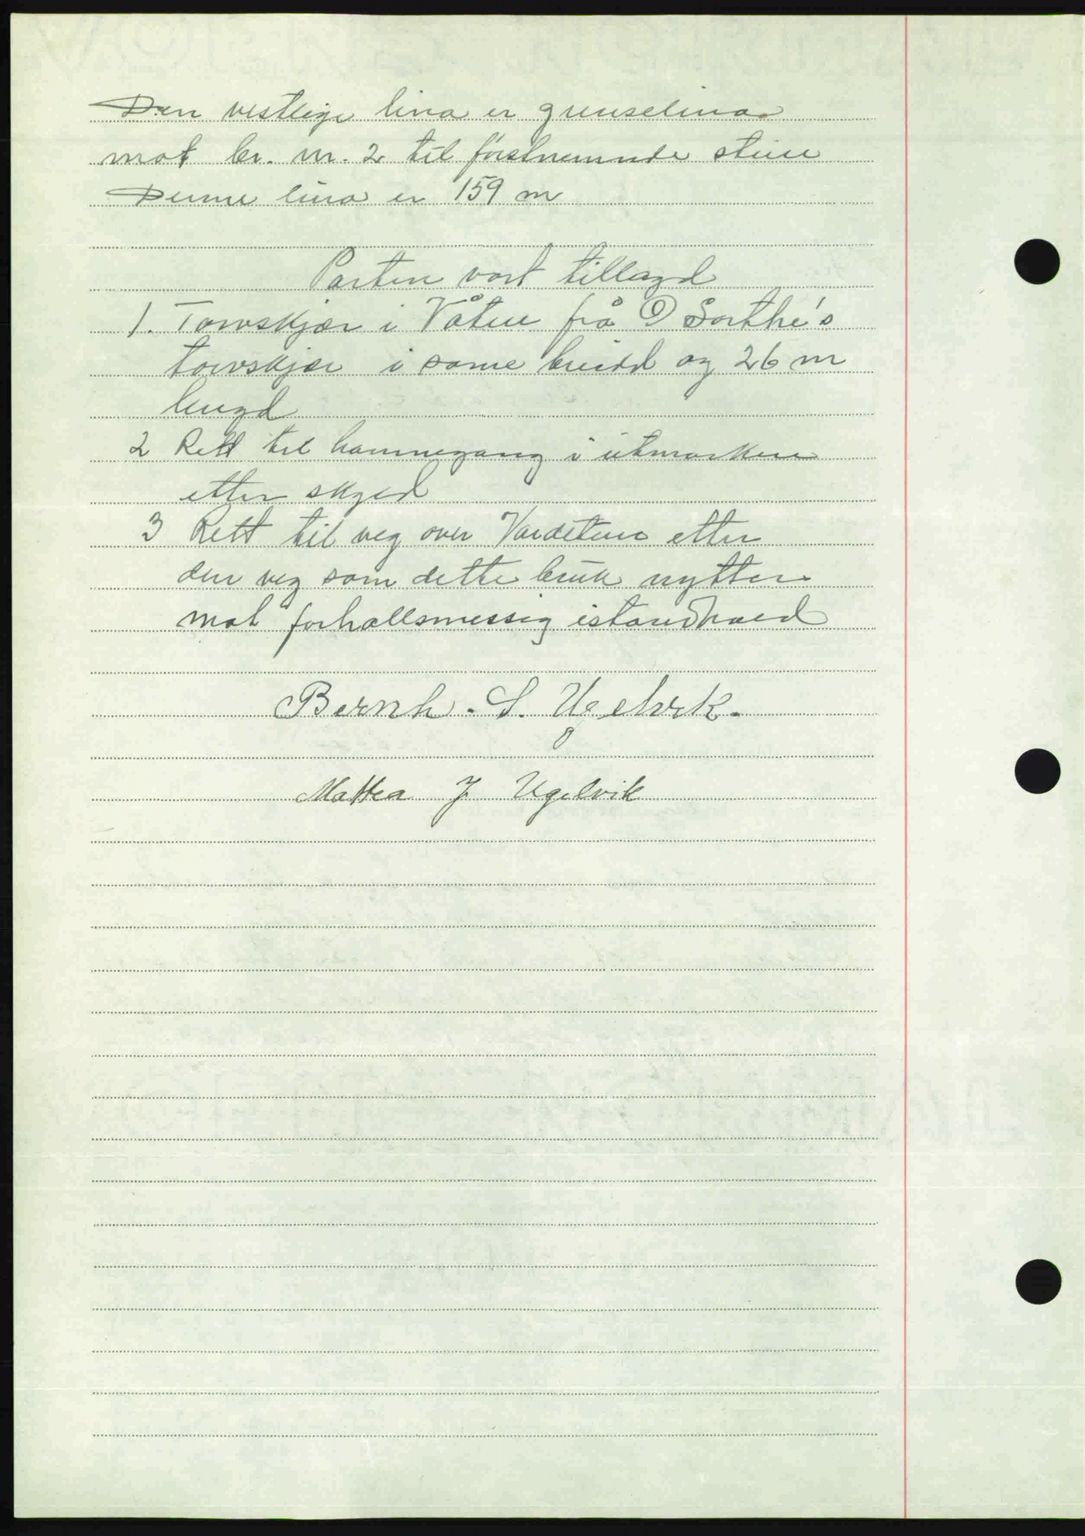 Den vestlige lina er grenselina
mot br. nr. 2 til förstnemnde stein
Denne lina er 159 m
Parten vart tillagd
1. Torvskjær i Våten frå O Sorthe's
torvskjær i same breidd og 26 m
lengd
2 Rett til hamnegang i utmarken
etter skyld
3 Rett til veg over Vardetun etter
den veg som dette bruk nytter
mot forhallsmessig istandhald
Bernh. S. Ugelvik.
Mattea J Ugelvik